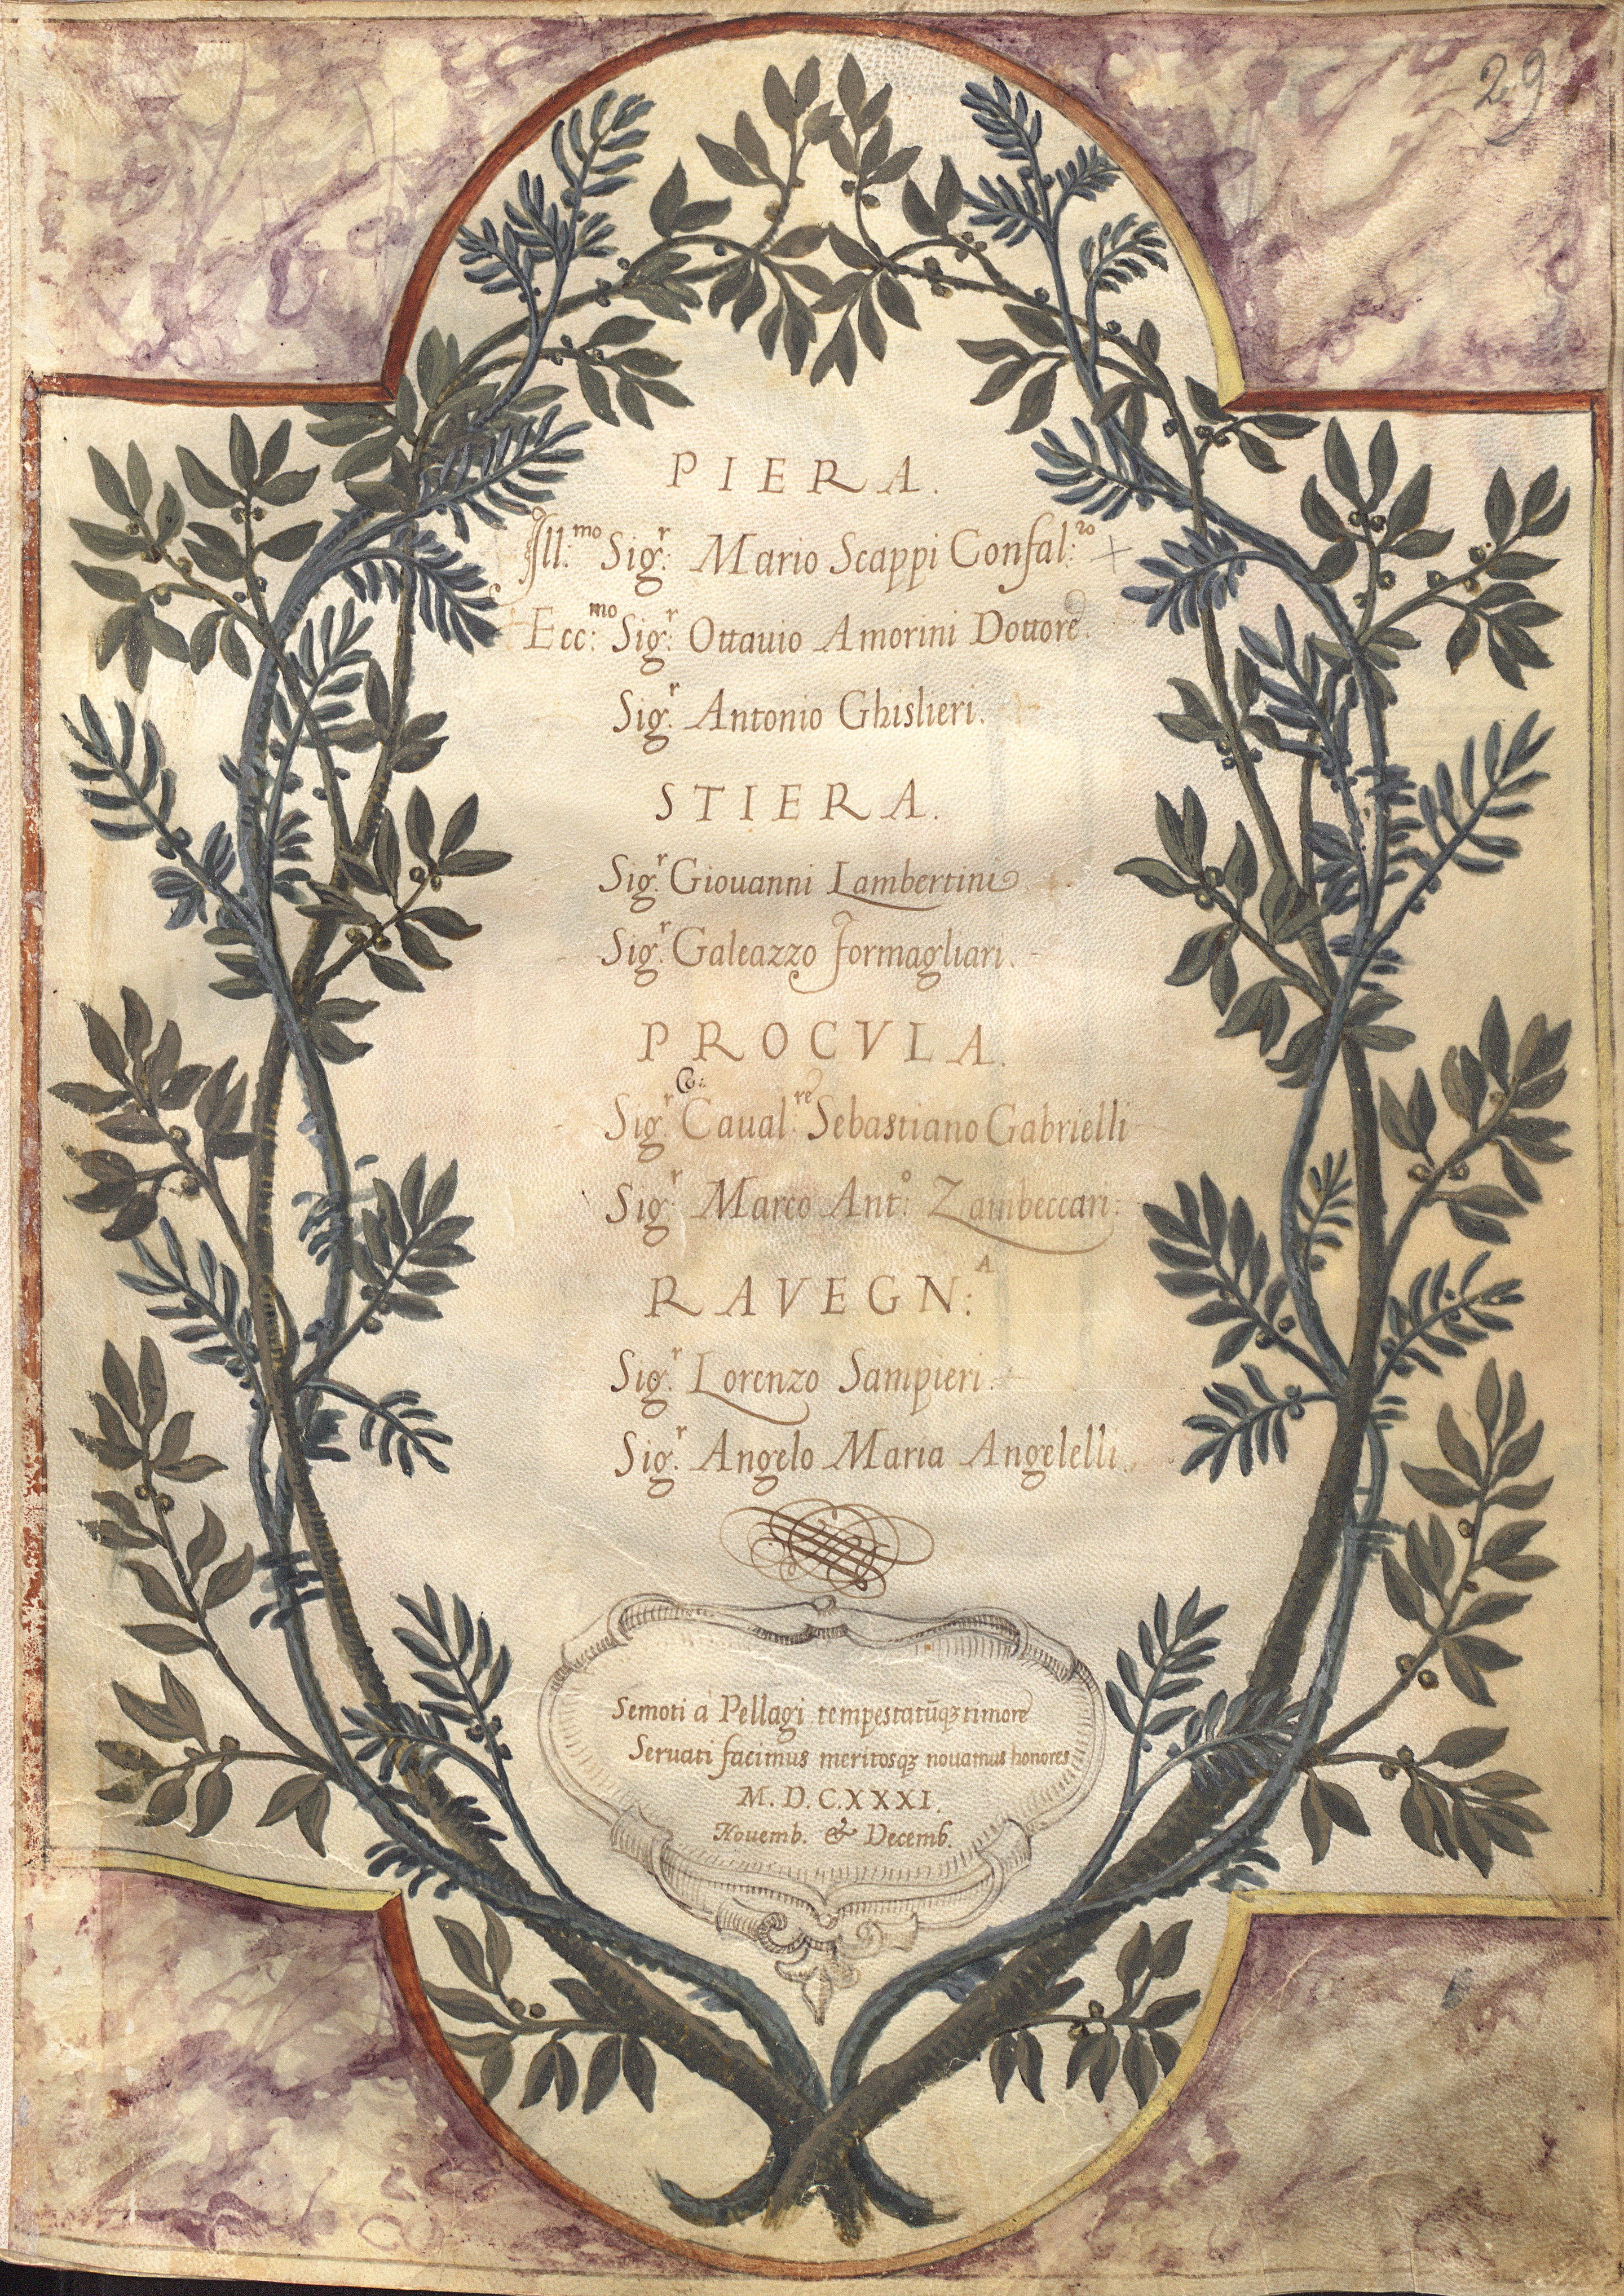 29
PIERA.
Ill:mo Sigr: Mario Scappi Confal:ro
Ecc:mo Sigr: Ottauio Amorini Dottore.
Sigr: Antonio Ghislieri.
STIERA.
Sigr: Giouanni Lambertini
Sigr: Galeazzo Formagliari.
PROCVLA.
Co:
Sigr: Caual:re Sebastiano Gabrielli
Sigr: Marco Anto: Zambeccari:
RAVEGN:A
Sigr: Lorenzo Sampieri.
Sigr: Angelo Maria Angelelli.
Semoti à Pellagi tempestatūqꝫ timore
Seruati facimus meritosqꝫ nouamus honores
M.D.C.XXXI.
Nouemb. & Decemb.